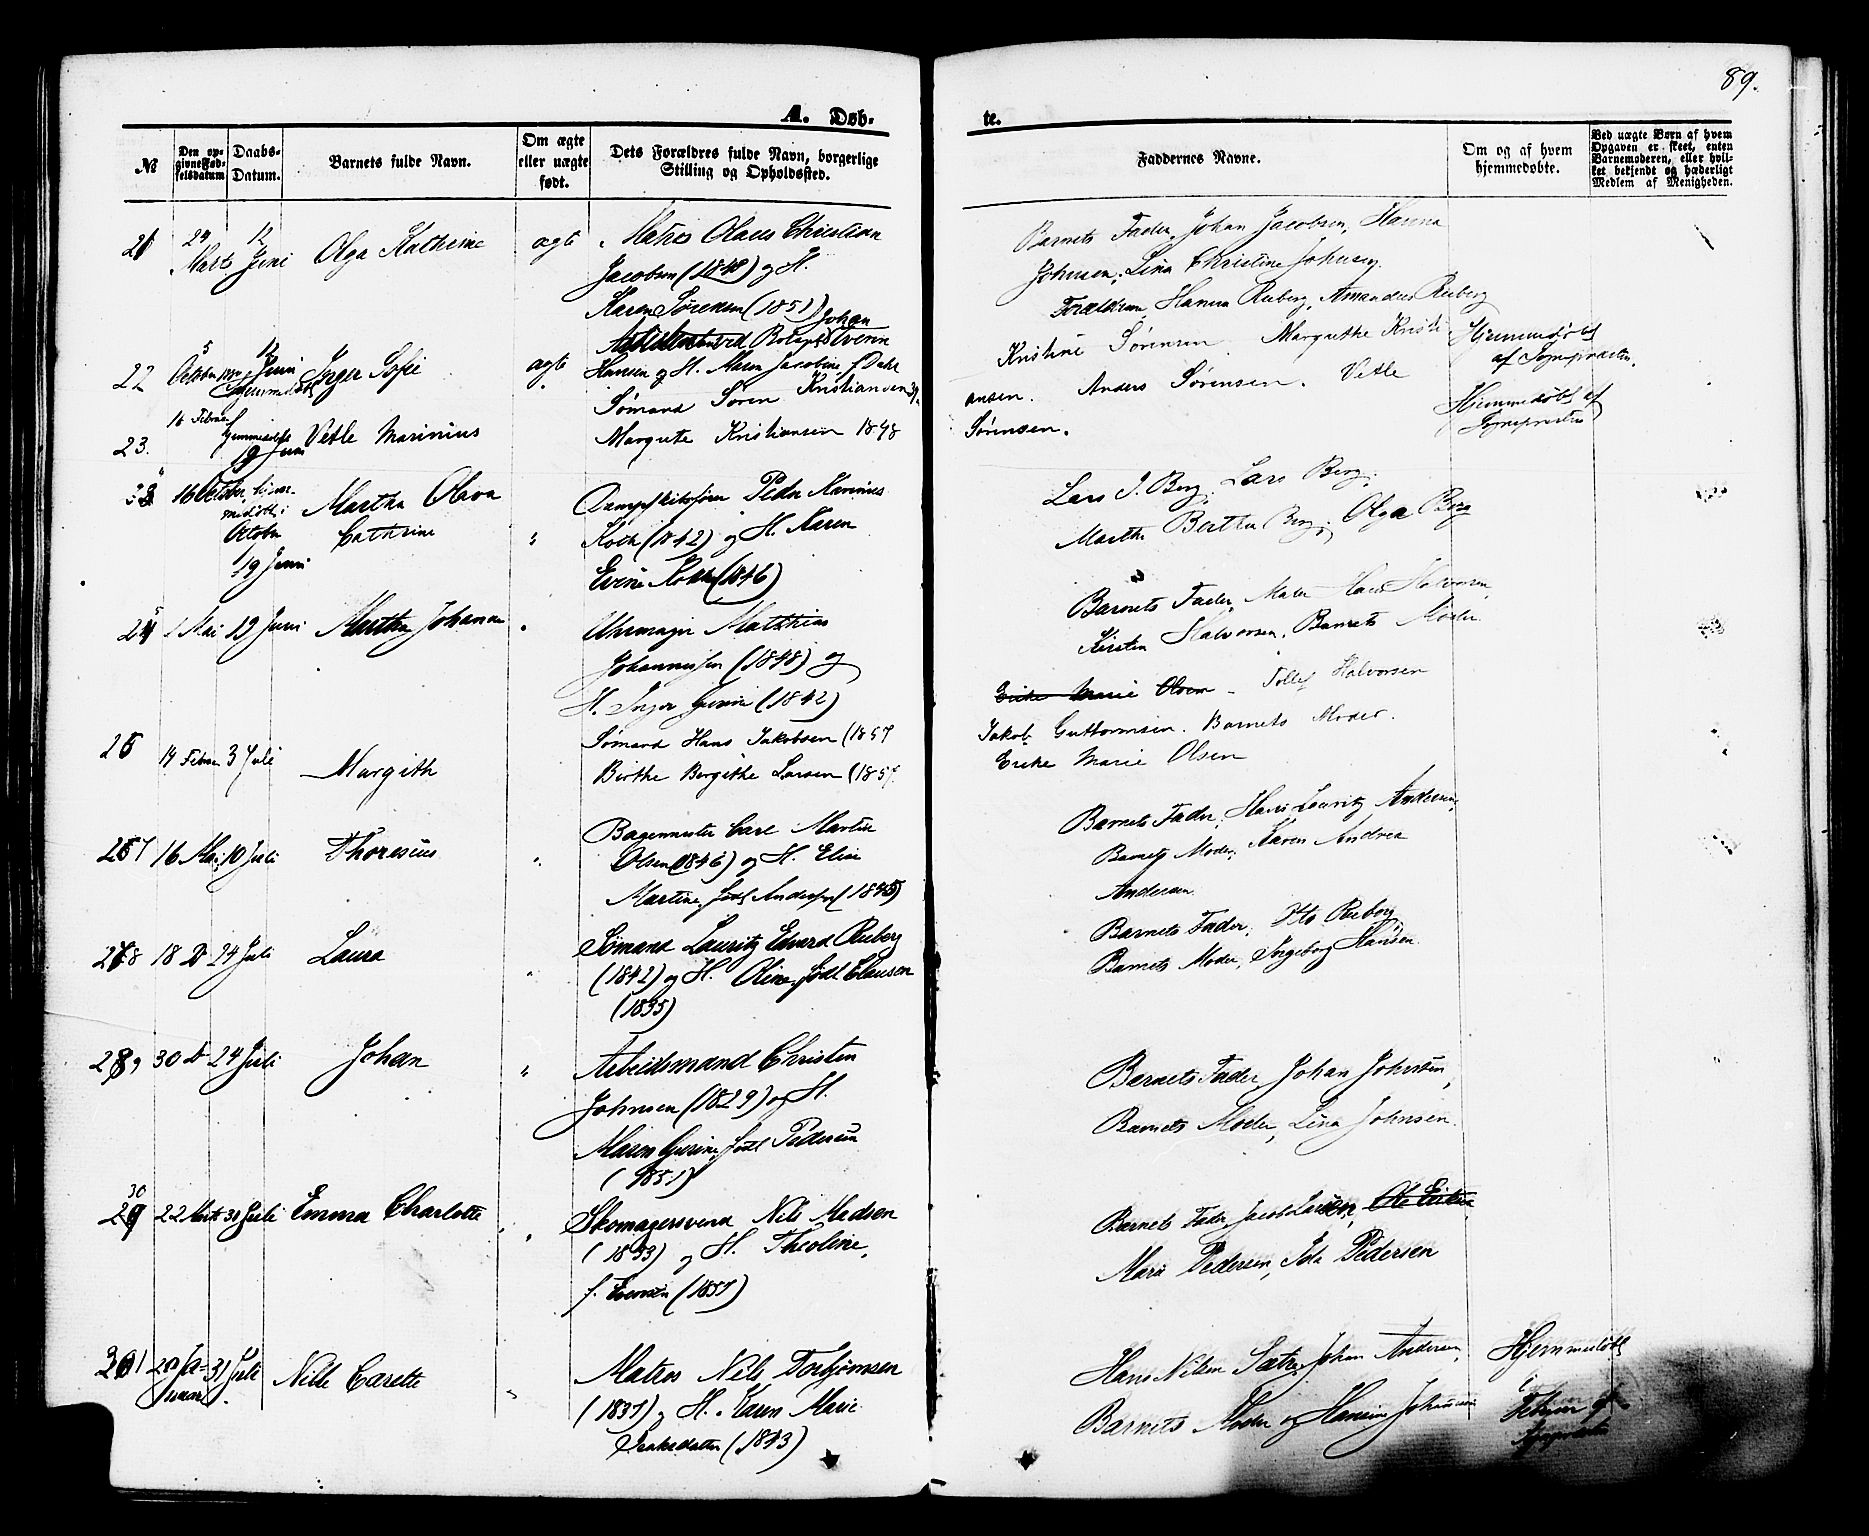 89.
A. Døb-
te.
№
Den op-
givne Fød-
selsdatum
Daabs-
Datum.
Barnets fulde Navn.
Om ægte
eller uægte
født.
Dets Forældres fulde Navn, borgerlige
Stilling og Opholdssted.
Faddernes Navne.
Om og af hvem
hjemmedøbte.
Ved uægte Børn af hvem
Opgaven er skeet, enten
Barnemoderen, eller hvil-
ket bekjendt og hæderligt
Medlem af Menigheden.
21 24 Marts 12 Juni Olga Kathrine ægte Matros Olaus Christian
Jacobsen (1848) og H.
Karen Sørensen (1851)
Barnets Fader, Johan Jacobsen, Hanna
Johnsen, Lina Christine Johnsen.
22 5 October 12 Juni Inger Sofie ægte Johan Evenn
Hansen og H. Maren Jacobine f. Dahl
Forældrene, Hanna Ruberg, Amandus Ruberg
Hjemmedøbt
af Sognepræsten.
23. 16 Februar hjemmedøbt 9 Juni Vetle Marinius
Sømand Søren Kristiansen og
Margrete Kristiansen 1848
Kristine Sørensen. Margrethe Kristi
ansen. Anders Sørensen. Vetle
Sørensen.
Hjemmedøbt af
Sognepræsten
16 October hjem-
medøbt i
October
19 Juni
Martha Olava
Cathrine
"
Dampskibsfører Peder Marinius
Koth (1842) og H. Karen
Evine Koth (1846)
Lars J. Berg, Lars Berg,
Marthe Berthea Berg, Olga Berg
25 1 Mai 12 Juni Marthe Johanne "
Uhrmager Matthias
Johannessen (1848) og
H. Inger Gurine (1842)
Barnets Fader, Hans Halvorsen,
Kirsten Halvorsen, Barnets Moder.
26 14 Febru 3 Juli Margith
Sømand Hans Jakobsen (1857
Birthe Bergithe Larsen (1857.
Erike Marie Olsen - Tollef Halvorsen
Jakob Guttormsen. Barnets Moder.
Erike Marie Olsen
27 16 Mai 10 Juli Thoresius "
Bagermester Carl Martin
Olsen (1846) og H. Elise
Martine, født Andersen (1845)
Barnets Fader, Hans Lauritz Andersen,
Barnets Moder, Karen Andrea
Andersen.
28 18 D 24 Juli Laura "
Sømand Lauritz Edvard Ruberg
(1842) og H. Oline, født Clausen
(1835)
Barnets Fader, Otto Ruberg
Barnets Moder, Ingeborg Hansen.
29 30 D 24 Juli Johan "
Arbeidsmand Christen
Johnsen (1829) og H.
Maren Gurine, født Pedersen
(1851)
Barnets Fader, Johan Johnsen,
Barnets Moder, Lina Johnsen.
30 22 Marts 31 Juli Emma Charlotte "
Skomagersvend Nils Madsen
(1853) og H. Theoline,
f. Evensen (1857)
Barnets Fader, Jacob Larsen, Ole Eriksen
Maria Pedersen, Ida Pedersen
31 20 Ja-
nuar 31 Juli Nille Carette "
Matros Nils Torbjørnsen
(1837) og H. Karen Marie
Isaksdatter (1843)
Hans Nilsen Sætre, Johan Andersen,
Barnets Moder og Hansine Johannesen
Hjemmedøbt
i
Februar af
Sognepræsten